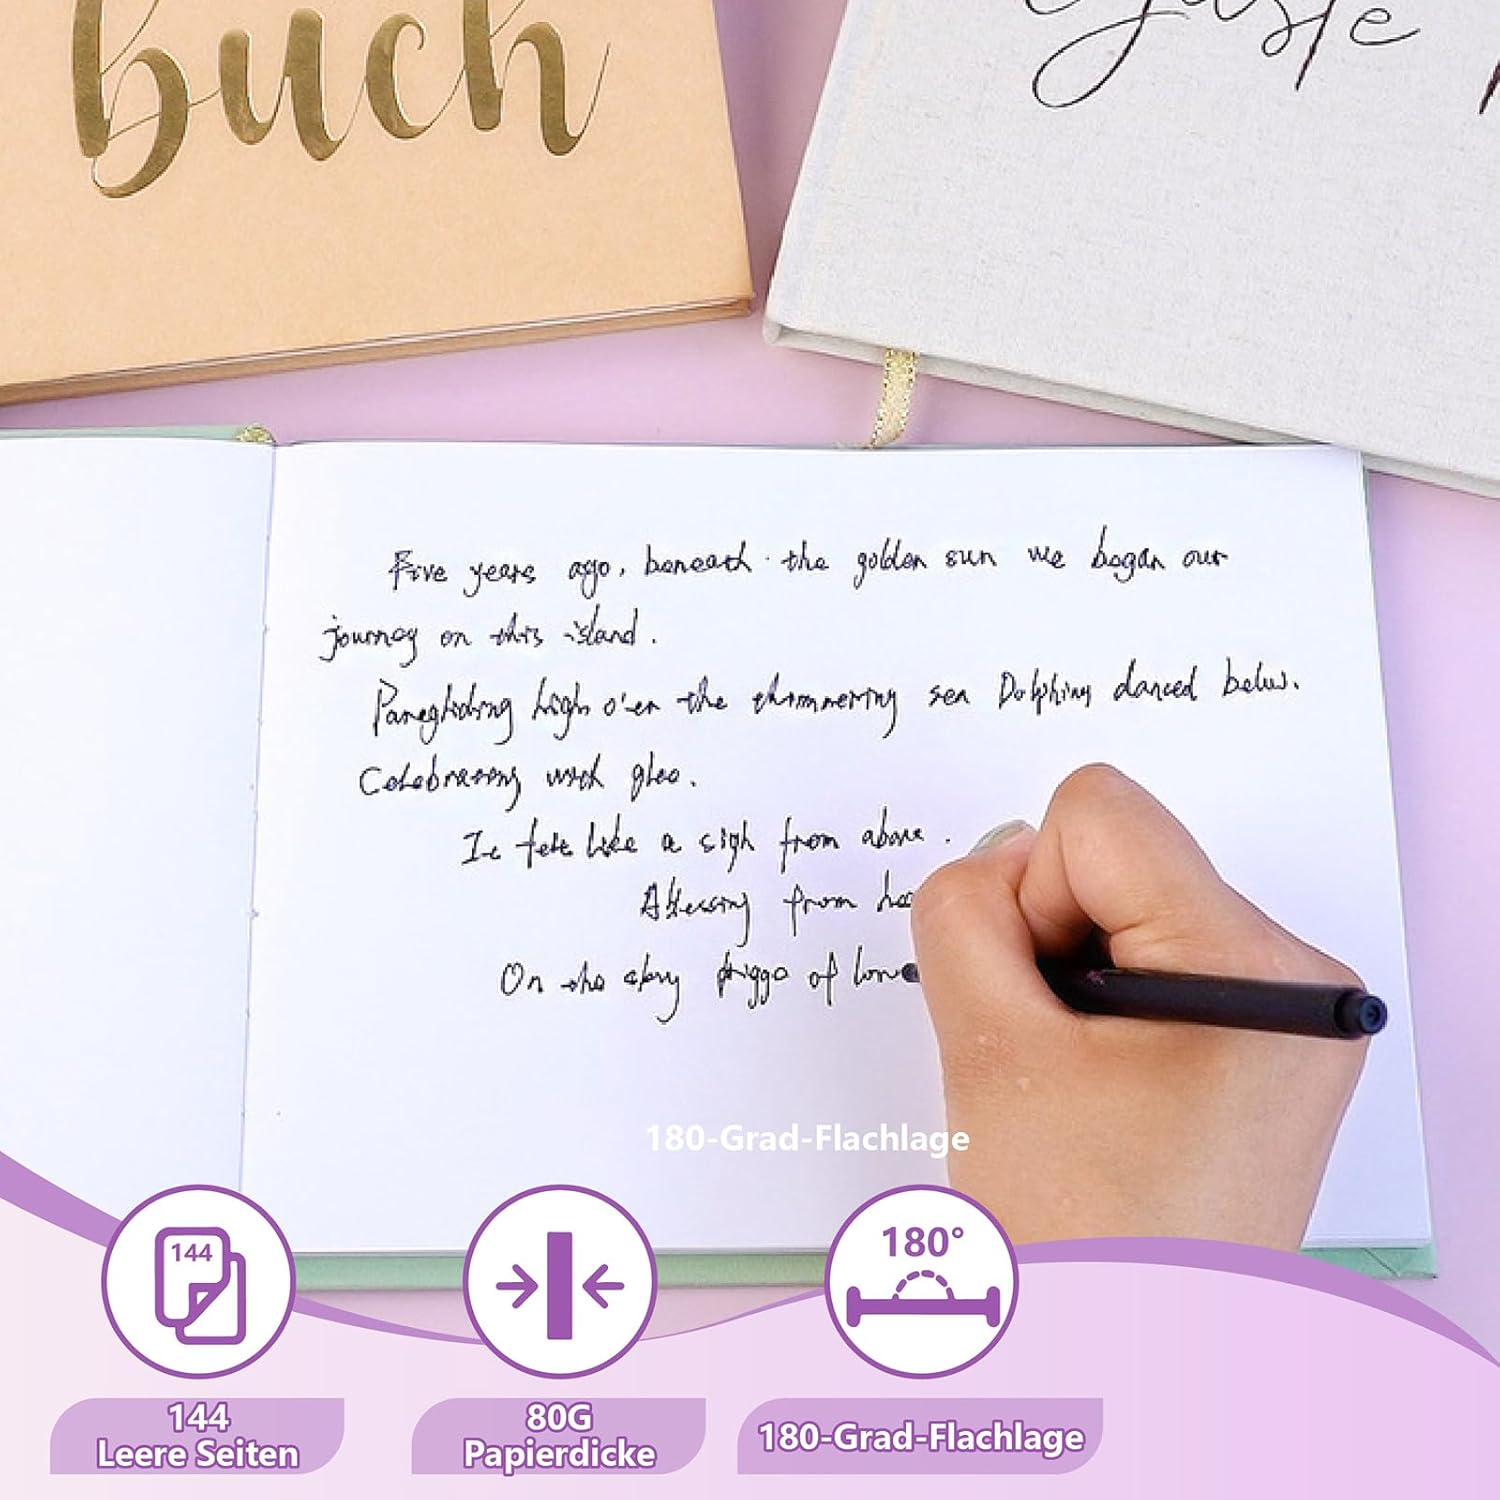 buch
Gäste
Five years ago, beneath the golden sun we began our
journey on this island.
Paragliding high o'er the shimmering sea Dolphins danced below.
Celebrating with glee.
It felt like a sigh from above.
from
On the of
180-Grad-Flachlage
144
180°
144
Leere Seiten
80G
Papierdicke
180-Grad-Flachlage